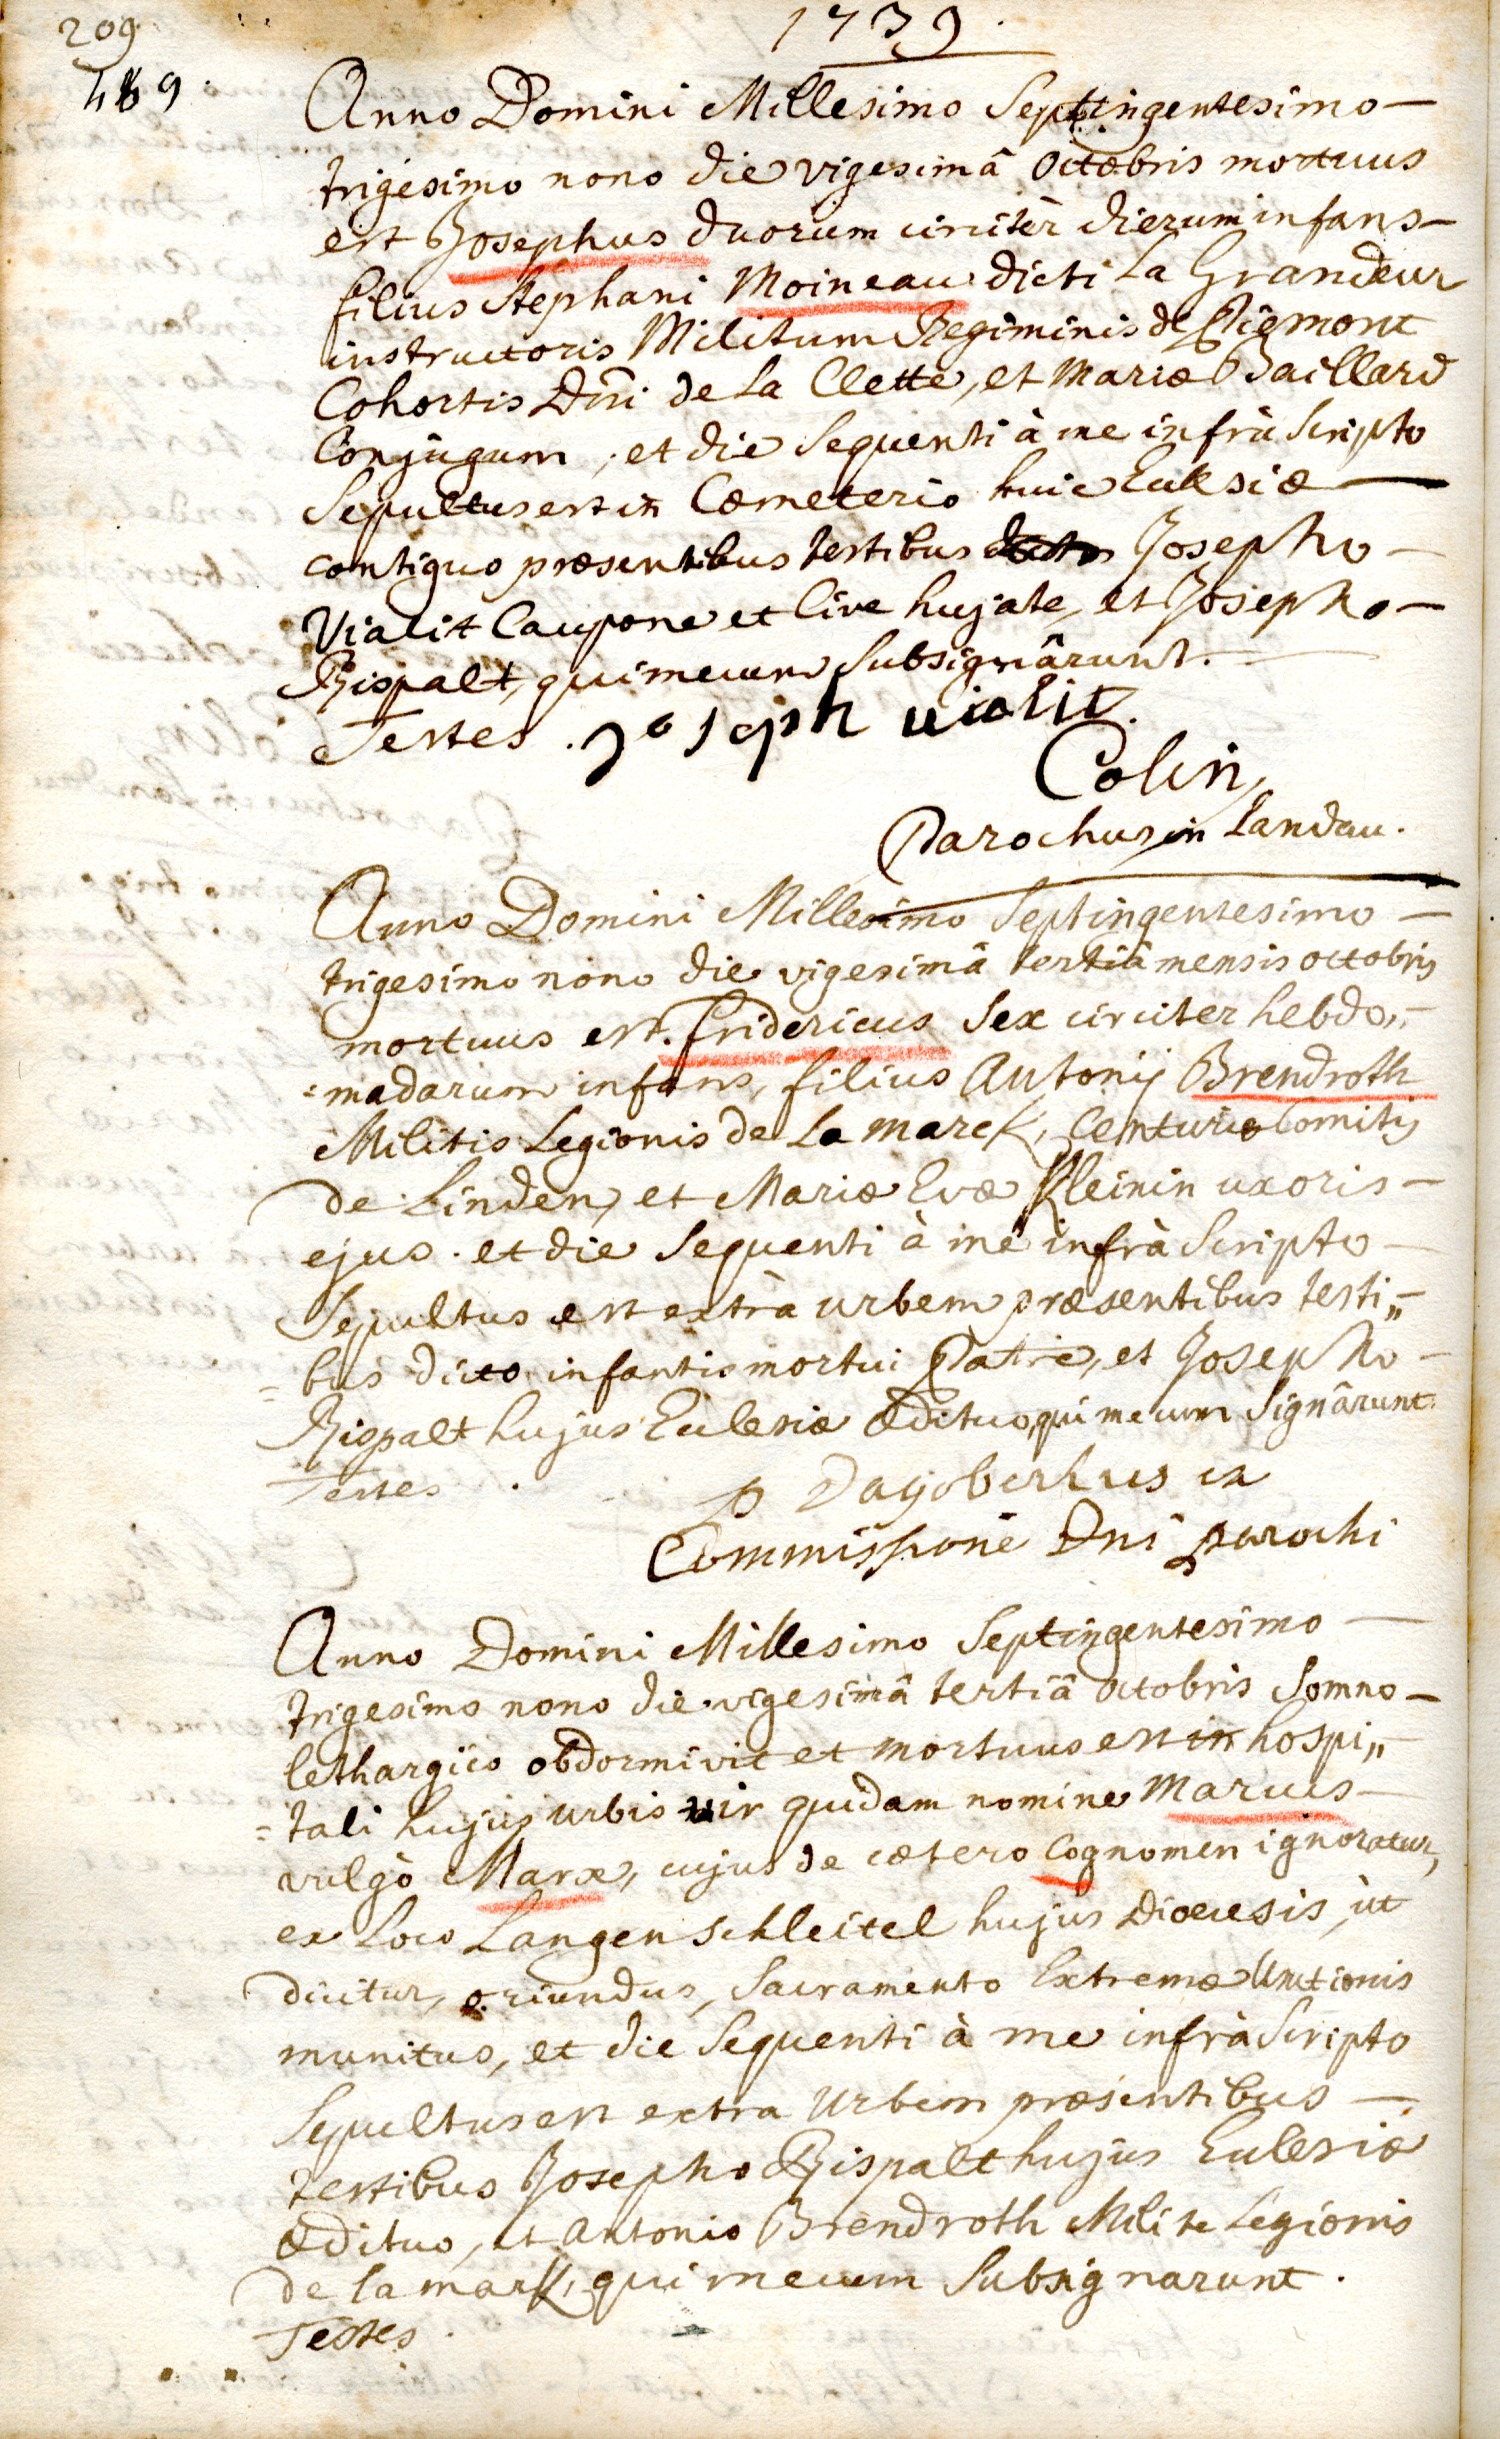 209
1739.
489.
Anno Domini Millesimo Septingentesimo —
trigesimo nono die vigesimâ octobris mortuus
est Josephus duorum circitèr dierum infans —
filius Stephani Moineau dicti La Grandeur
instructoris Militum Regiminis de Rigmont
Cohortis Dni de La Clette, et Mariæ Baillard
Conjugum, et die sequenti à me infrà scripto
Sepultus est in Cœmeterio huic Ecclesiæ —
contiguo præsentibus testibus Josepho —
Vialit Caupone et Cive hujate, et Josepho —
Rispalt, qui mecum subsignârunt. —
Testes. joseph uialit.
Colin,
Parochus in Landau.
Anno Domini Millesimo Septingentesimo —
trigesimo nono die vigesimâ tertiâ mensis octobris
mortuus est. Fridericus sex circiter hebdo„-
=madarum infans, filius Antonij Brendroth
Militis Legionis de La Marck, Centuriæ Comitis
de Linden, et Mariæ Evæ Kleinin uxoris —
ejus. et die sequenti à me infrà scripto —
Sepultus est extrà urbem præsentibus testi„-
=bus dicto infantis mortui Patre, et Josepho —
Rispalt hujus Ecclesiæ Ædituo, qui mecum signârunt.
Testes.
p Dagobertus ex
Commissione Dni parochi
Anno Domini Millesimo Septingentesimo —
trigesimo nono die vigesimâ tertiâ octobris somno —
lethargico obdormivit et mortuus est in hospi„-
=tali hujus urbis vir quidam nomine Marcus —
vulgò Marx, cujus de cætero cognomen ignoratur,
ex Loco Langenschleitel hujus Diœcesis, ùt
dicitur, oriundus, Sacramento Extremæ Unctionis
munitus, et die sequenti à me infrà scripto
Sepultus est extra Urbem præsentibus —
testibus Josepho Rispalt hujus Ecclesiæ
Ædituo, et Antonio Brendroth Milite Legionis
de la mark, qui mecum subsignarunt.
Testes.